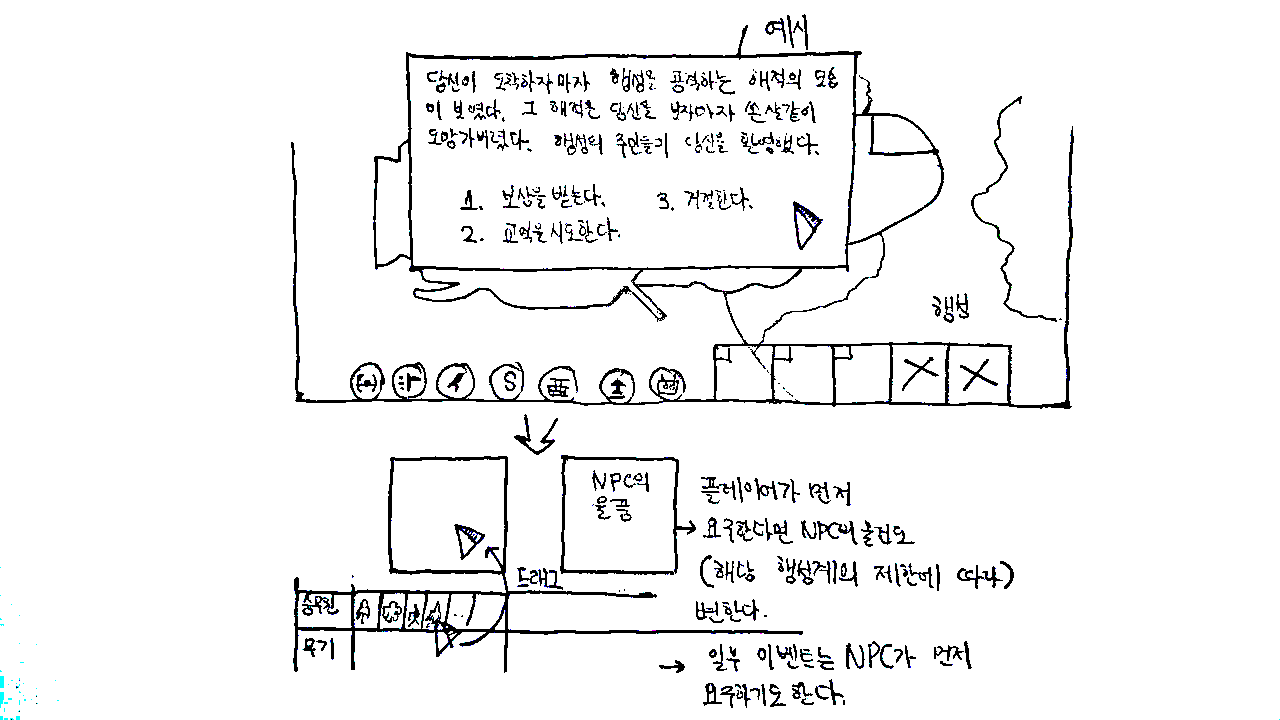 예시
당신이 도착하자마자 행성을 공격하는 해적의 모습
이 보였다. 그 해적은 당신을 보자마자 쏜살같이
도망가버렸다. 행성의 주민들이 당신을 환영했다.
1. 보상을 받는다. 3. 거절한다.
2. 교역을 시도한다.
행성
S
NPC의
물품
플레이어가 먼저
요구한다면 NPC의 물건도
(해당 행성계의 제한에 따라)
변한다.
드래그
승무원
무기
일부 이벤트는 NPC가 먼저
요구하기도 한다.